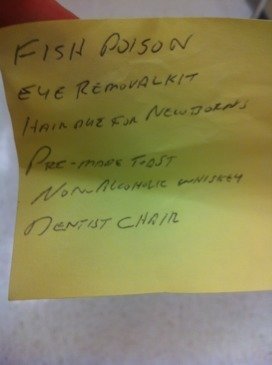 FISH POISON
EYE REMOVAL KIT
HAIR DYE FOR NEWBORNS
PRE-MADE TOAST
NON-ALCOHOLIC WHISKEY
DENTIST CHAIR